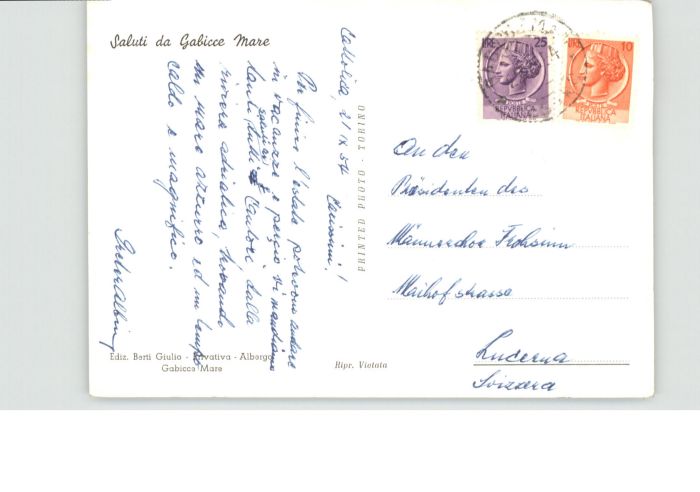 Saluti da Gabicce Mare
Cattolica, 21 IX 54
Carissimi!
In fine l'estate potremo andare
in vacanze e perciò vi mandiamo
tanti, tutti saluti Cantori, dalla
riviera adriatica, trovando
un mare azzurro ed un tempo
caldo e magnifico.
Ediz. Berti Giulio - Privativa - Albergo
Gabicce Mare
Ripr. Vietata
PRINTED PHOTO - TORINO
LIRE 25
POSTE
REPUBBLICA
ITALIANA
LIRE 10
POSTE
REPUBBLICA
ITALIANA
An den
Präsidenten des
Männerchor Frohsinn
Maihofstrasse
Lucerna
Svizzera